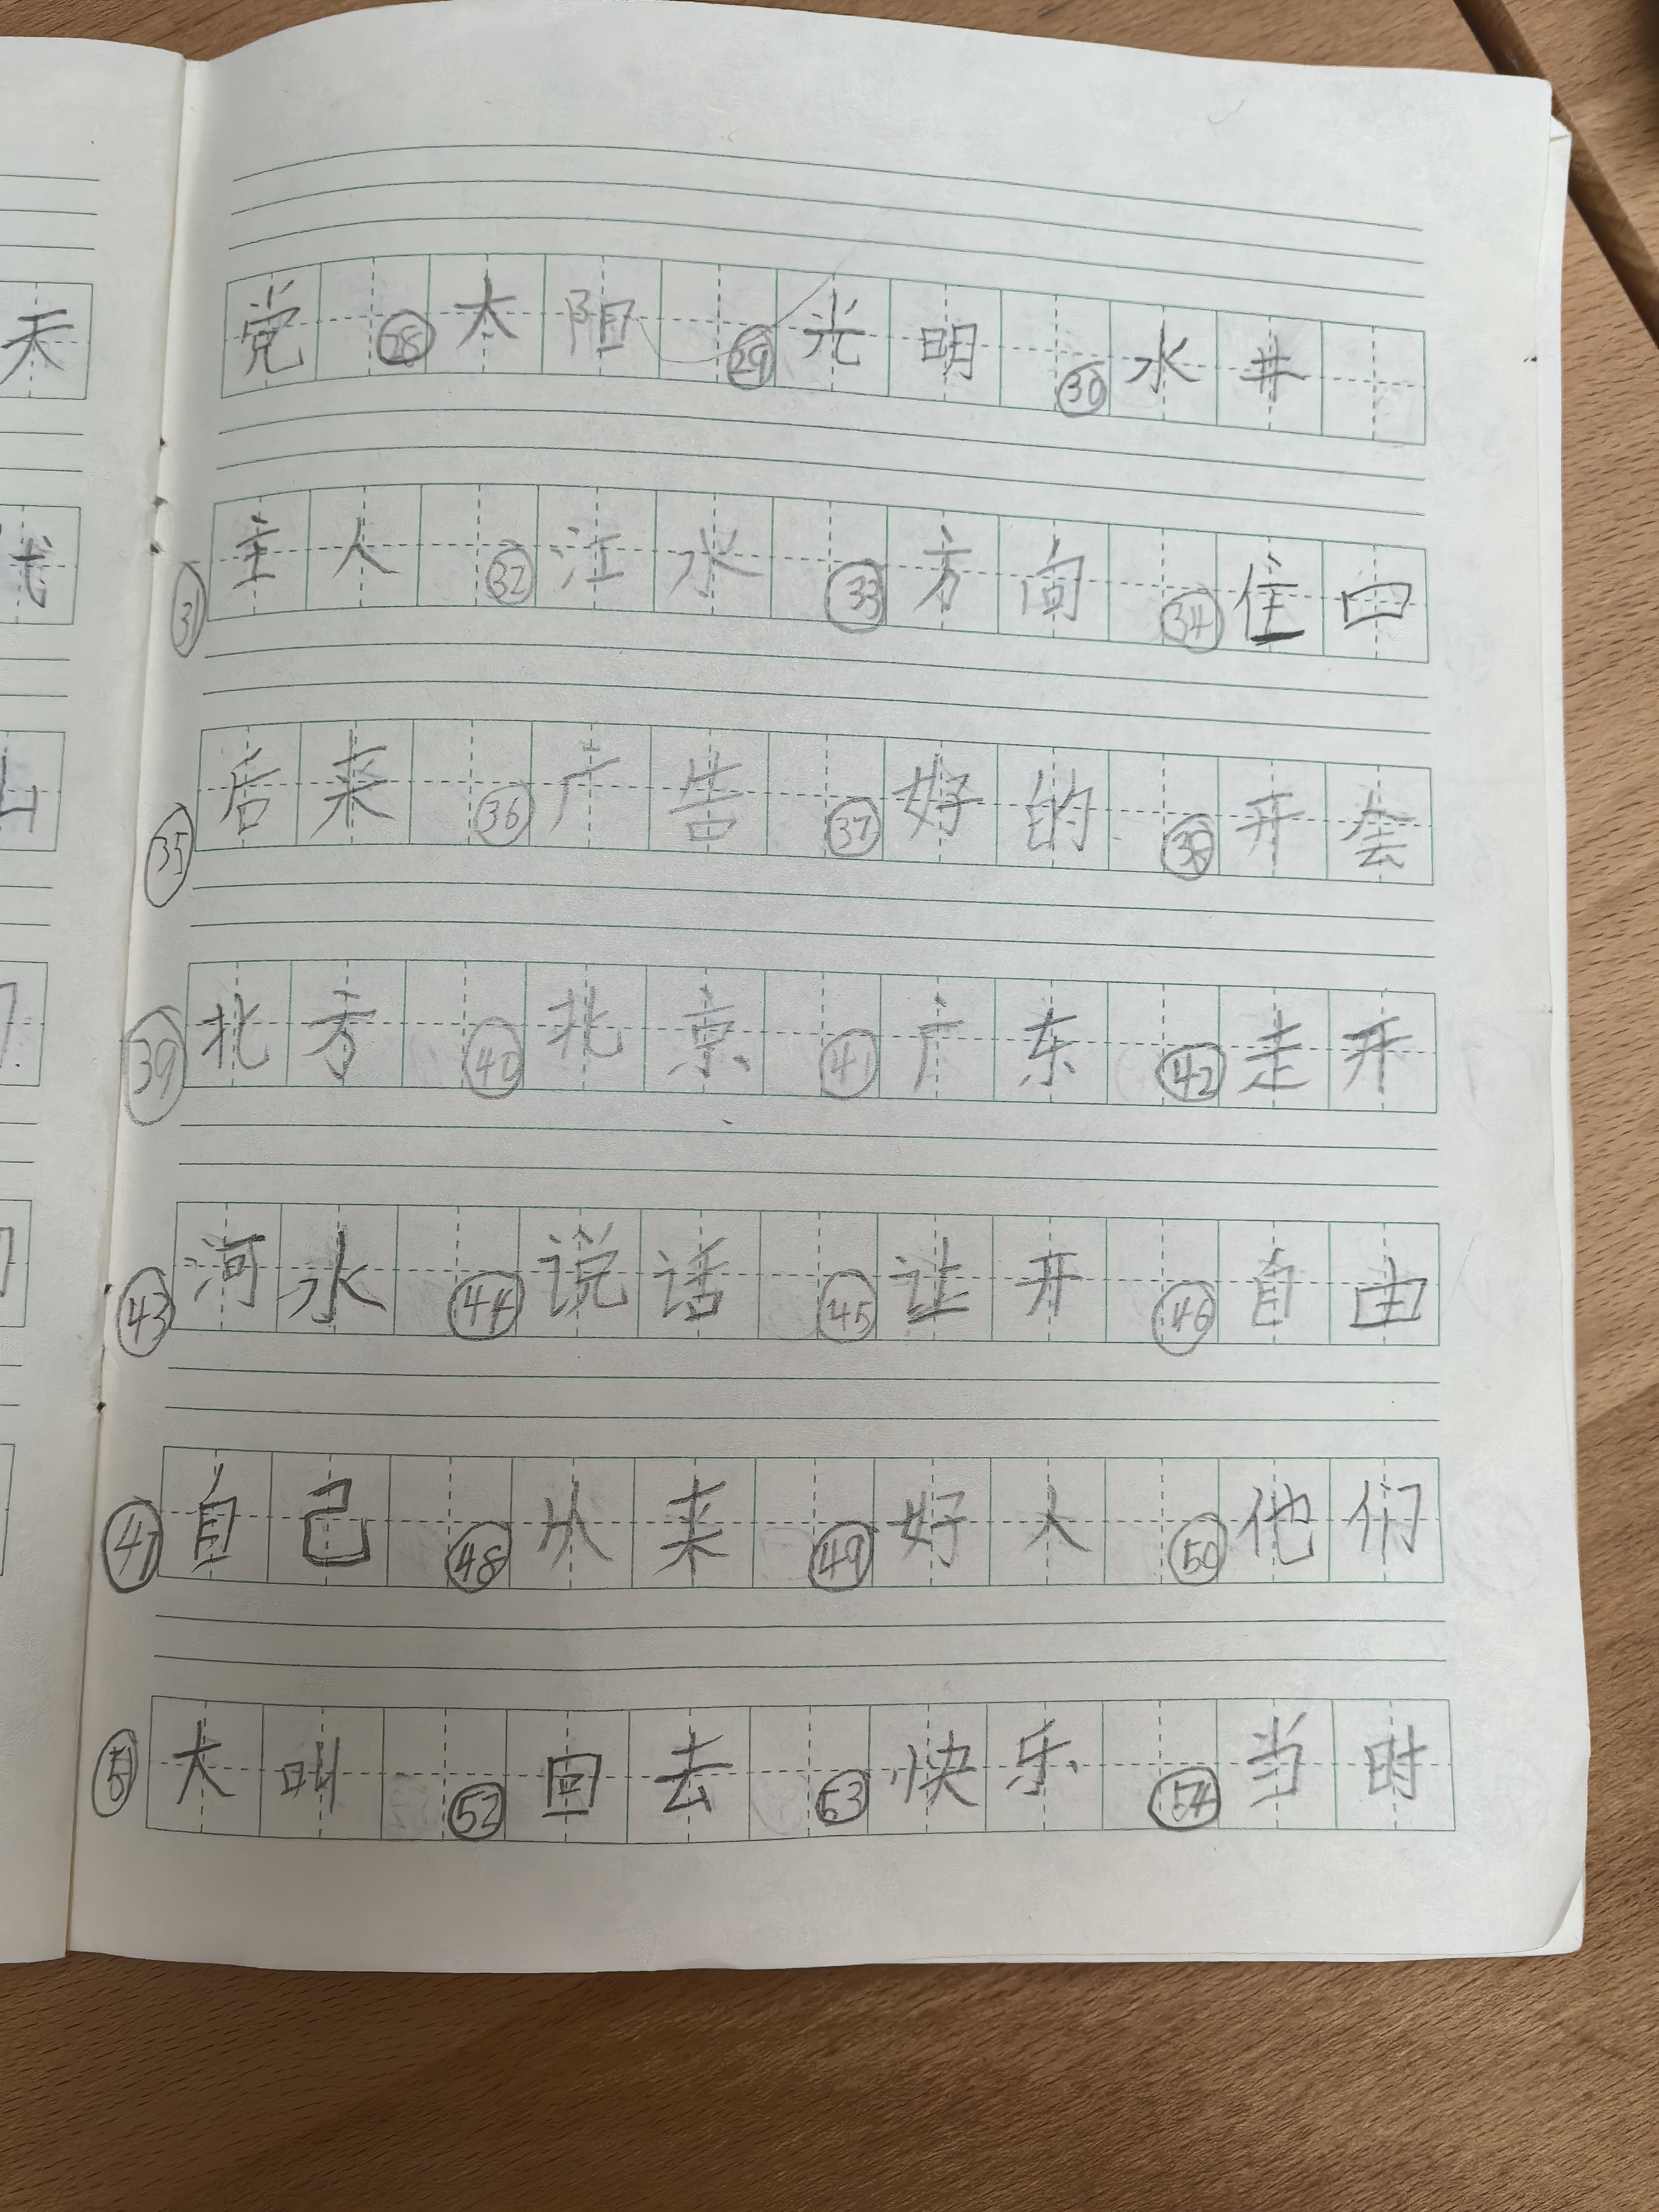 党 ㉘ 太阳 ㉙ 光明 ㉚ 水井
㉛ 主人 ㉜ 江水 ㉝ 方向 ㉞ 住口
㉟ 后来 ㊱ 广告 ㊲ 好的 ㊳ 开会
㊴ 北方 ㊵ 北京 ㊶ 广东 ㊷ 走开
㊸ 河水 ㊹ 说话 ㊺ 让开 ㊻ 自由
㊼ 自己 ㊽ 从来 ㊾ 好人 ㊿ 他们
51 大叫 52 回去 53 快乐 54 当时
天